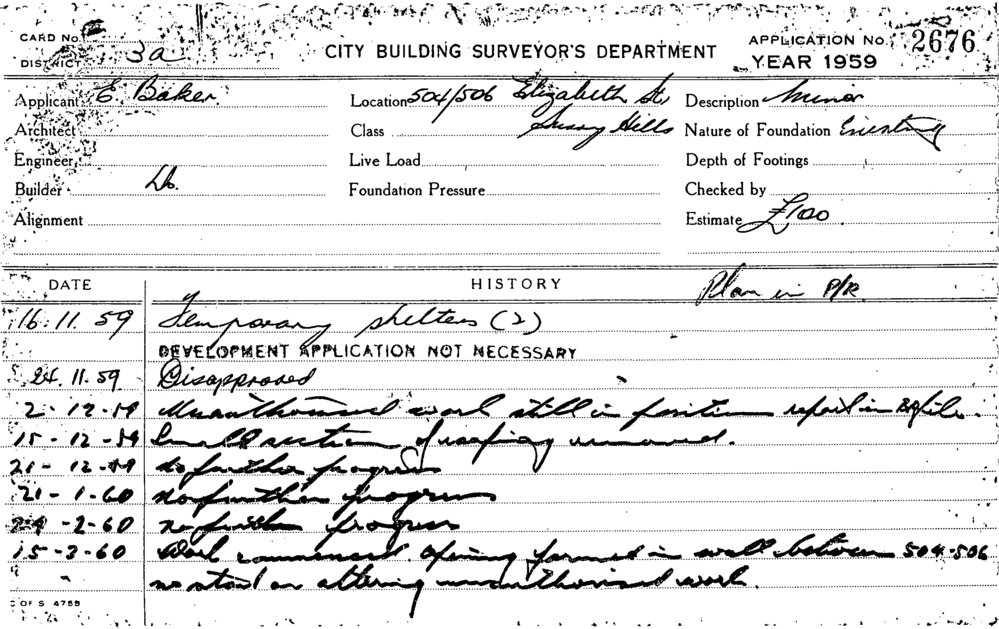 CARD No.
DISTRICT 3a
CITY BUILDING SURVEYOR'S DEPARTMENT
APPLICATION No. 2676
YEAR 1959
Applicant E. Baker.
Location 504/506 Elizabeth St,
Surry Hills
Description Minor
Architect
Class
Nature of Foundation Existing
Engineer
Live Load
Depth of Footings
Builder
Foundation Pressure
Checked by
Alignment
Estimate £100.
DATE
HISTORY
Plan in P/R.
16.11.59 Temporary shelters (2)
DEVELOPMENT APPLICATION NOT NECESSARY
24.11.59 Disapproved
2-12-59 Unauthorised work still in position report in BA file.
15-12-59 Small section of roofing removed.
21-12-59 No further progress
21-1-60 No further progress
29-2-60 No further progress
15-3-60 Work commenced. Opening formed in wall between 504-506
no start on altering unauthorised work.
C OF S 4755